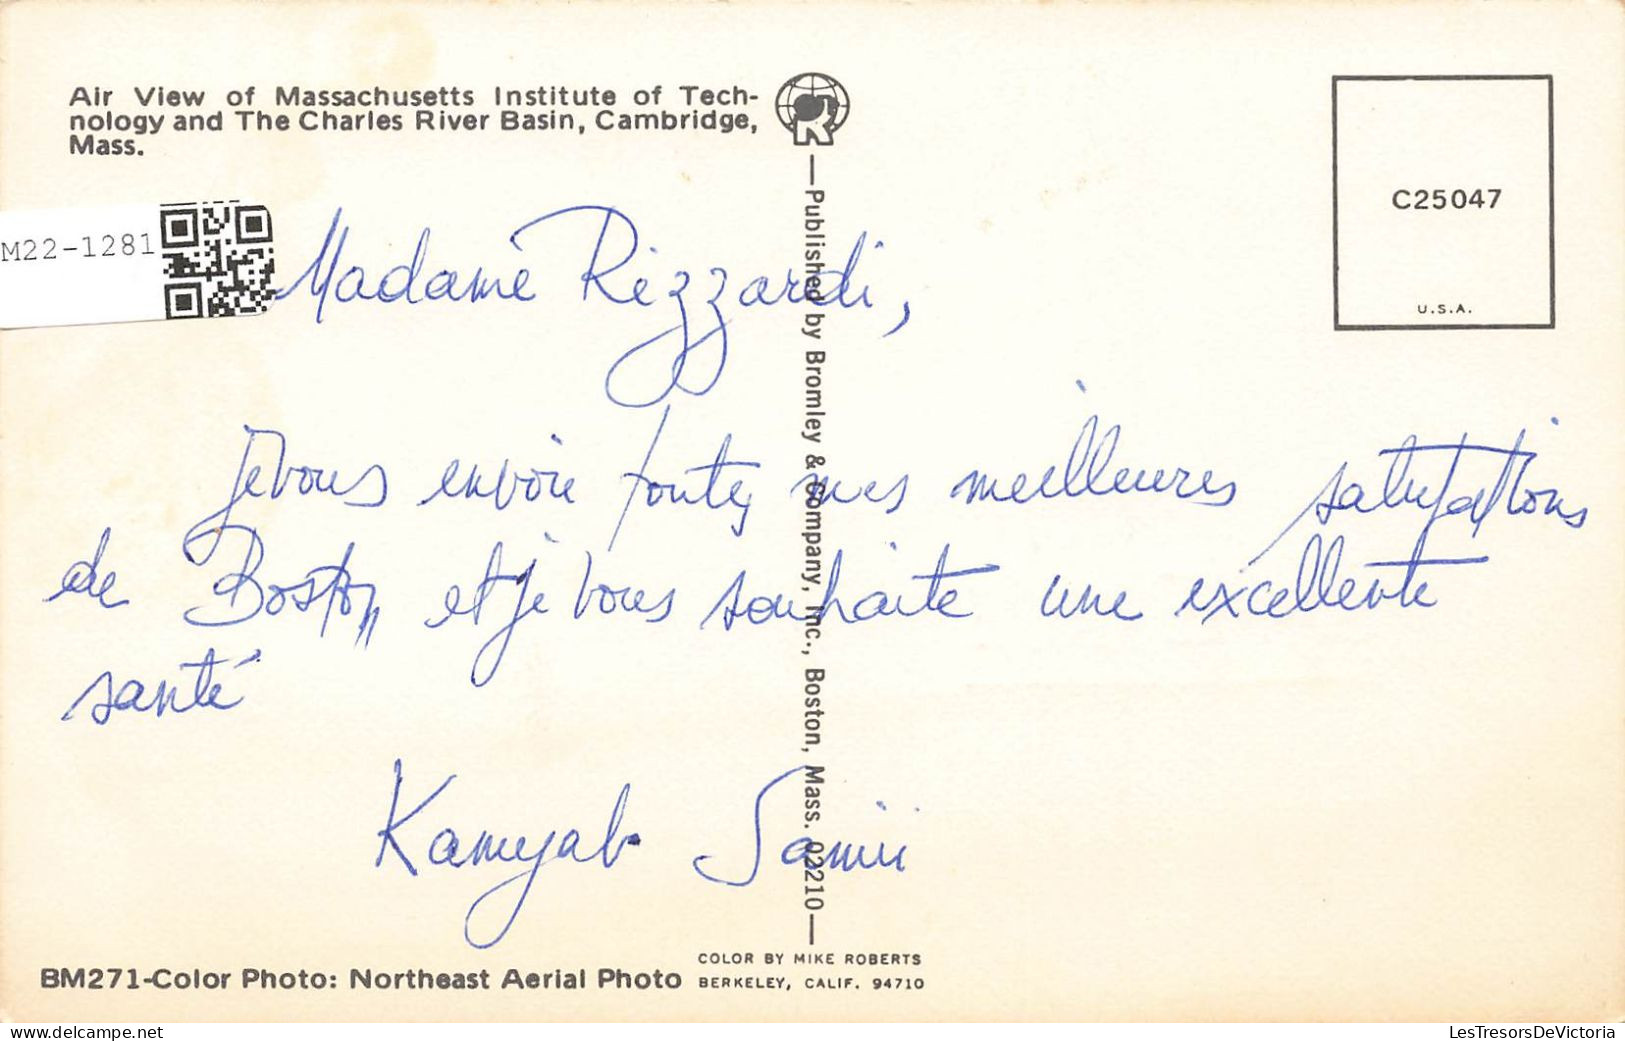 Air View of Massachusetts Institute of Tech-
nology and The Charles River Basin, Cambridge,
Mass.
C25047
U.S.A.
M22-1281
Madame Rizzardi,
je vous envoie toutes mes meilleures salutations
de Boston et je vous souhaite une excellente
santé
Kamyab Samii
Published by Bromley & Company, Inc., Boston, Mass. 02210
BM271-Color Photo: Northeast Aerial Photo
COLOR BY MIKE ROBERTS
BERKELEY, CALIF. 94710
www.delcampe.net
LesTresorsDeVictoria